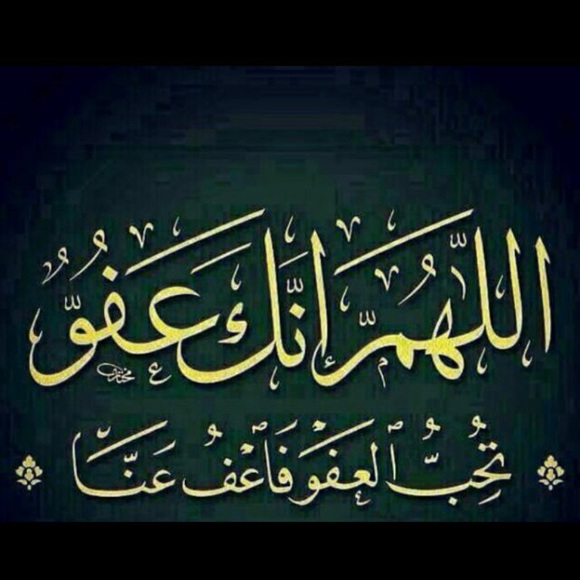 اللّٰهُمَّ إِنَّكَ عَفُوٌّ
تُحِبُّ الْعَفْوَ فَاعْفُ عَنَّا